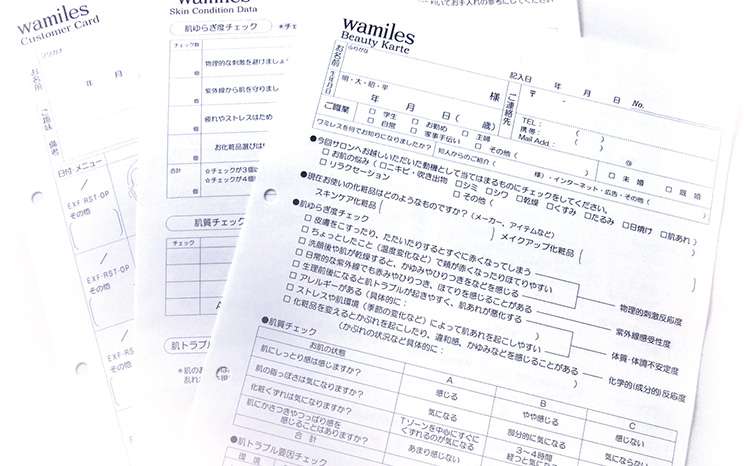 wamiles
Customer Card
フリガナ
お名前
ご趣味
備考
日付 メニュー
EXF・RST・OP
その他
EXF・RST・OP
その他
wamiles
Skin Condition Data
肌ゆらぎ度チェック
チェック数
物理的な刺激を避けましょ
個
紫外線から肌を守りまし
個
疲れやストレスはため
個
お化粧品選びは
個
合計
☆チェックが3個
☆チェックが4個
個
肌質チェック
チェック
A
B
肌トラブル
いてお手入れの参考にしてください
wamiles
Beauty Karte
記入日 年 月 日 No.
ふりがな
お名前
様
ご連絡先
〒 -
TEL: ( )
携帯: ( )
Mail Add.: @
生年月日
明・大・昭・平
年 月 日( 歳)
ご職業
□ 学生 □ お勤め □ 主婦
□ 自営 □ 家事手伝い □ その他(
□ 未婚 □ 既婚
ワミレスを何でお知りになりましたか? 知人からのご紹介( 様)・インターネット・広告・その他(
●今回サロンへお越しいただいた動機として当てはまるものにチェックをしてください。
□ お肌の悩み(□ニキビ・吹き出物 □シミ □シワ □乾燥 □くすみ □たるみ □日焼け □肌あれ)
□ リラクゼーション □ その他(
●現在お使いの化粧品はどのようなものですか?(メーカー、アイテムなど)
スキンケア化粧品
メイクアップ化粧品
●肌ゆらぎ度チェック
□ 皮膚をこすったり、たたいたりするとすぐに赤くなってしまう
□ ちょっとしたこと(温度変化など)で顔が赤くなったりほてりやすい
□ 洗顔後や肌が乾燥すると、かゆみやひりつきをなどを感じる
□ 日常的な紫外線でも赤みやひりつき、ほてりを感じることがある
□ 生理前後になると肌トラブルが起きやすく、肌あれが悪化する
□ アレルギーがある(具体的に: )
□ ストレスや肌環境(季節の変化など)によって肌あれを起こしやすい
□ 化粧品を変えるとかぶれを起こしたり、違和感、かゆみなどを感じることがある
(かぶれの状況など具体的に: )
物理的刺激反応度
紫外線感受性度
体質・体調不安定度
化学的(成分的)反応度
●肌質チェック
お肌の状態 A B C
肌にしっとり感は感じますか? 感じる やや感じる 感じない
肌の脂っぽさは気になりますか? 気になる 部分的に気になる 気にならない
化粧くずれは気になりますか? Tゾーンを中心にすぐにくずれるのが気になる 3〜4時間経つと気になる
肌にかさつきやつっぱり感を感じることはありますか? あまり感じない
合計
●肌トラブル要因チェック
環境